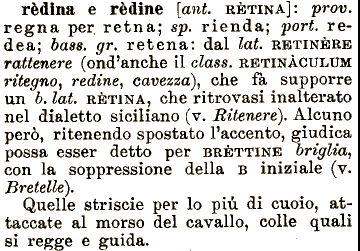 rèdina e rèdine [ant. RÈTINA]: prov.
regna per retna; sp. rienda; port. re-
dea; bass. gr. retena: dal lat. RETINÈRE
rattenere (ond'anche il class. RETINÀCULUM
ritegno, redine, cavezza), che fà supporre
un b. lat. RÈTINA, che ritrovasi inalterato
nel dialetto siciliano (v. Ritenere). Alcuno
però, ritenendo spostato l'accento, giudica
possa esser detto per BRÈTTINE briglia,
con la soppressione della B iniziale (v.
Bretelle).
Quelle striscie per lo piú di cuoio, at-
taccate al morso del cavallo, colle quali
si regge e guida.